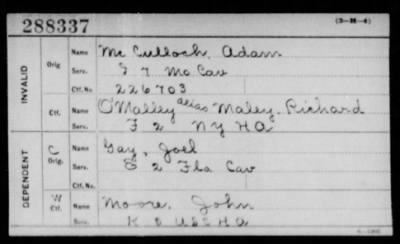 288337
(3-M-4)
INVALID
Orig Name McCulloch, Adam
Serv. E 7 Mo Cav
Ctf. No. 226703
Ctf. Name O'Malley alias Maley, Richard
Serv. F 2 N Y H A
DEPENDENT
C Orig. Name Gay, Joel
Serv. E 2 Fla Cav
Ctf. No.
W Ctf. Name Moore, John
Serv. K 5 U S C H A